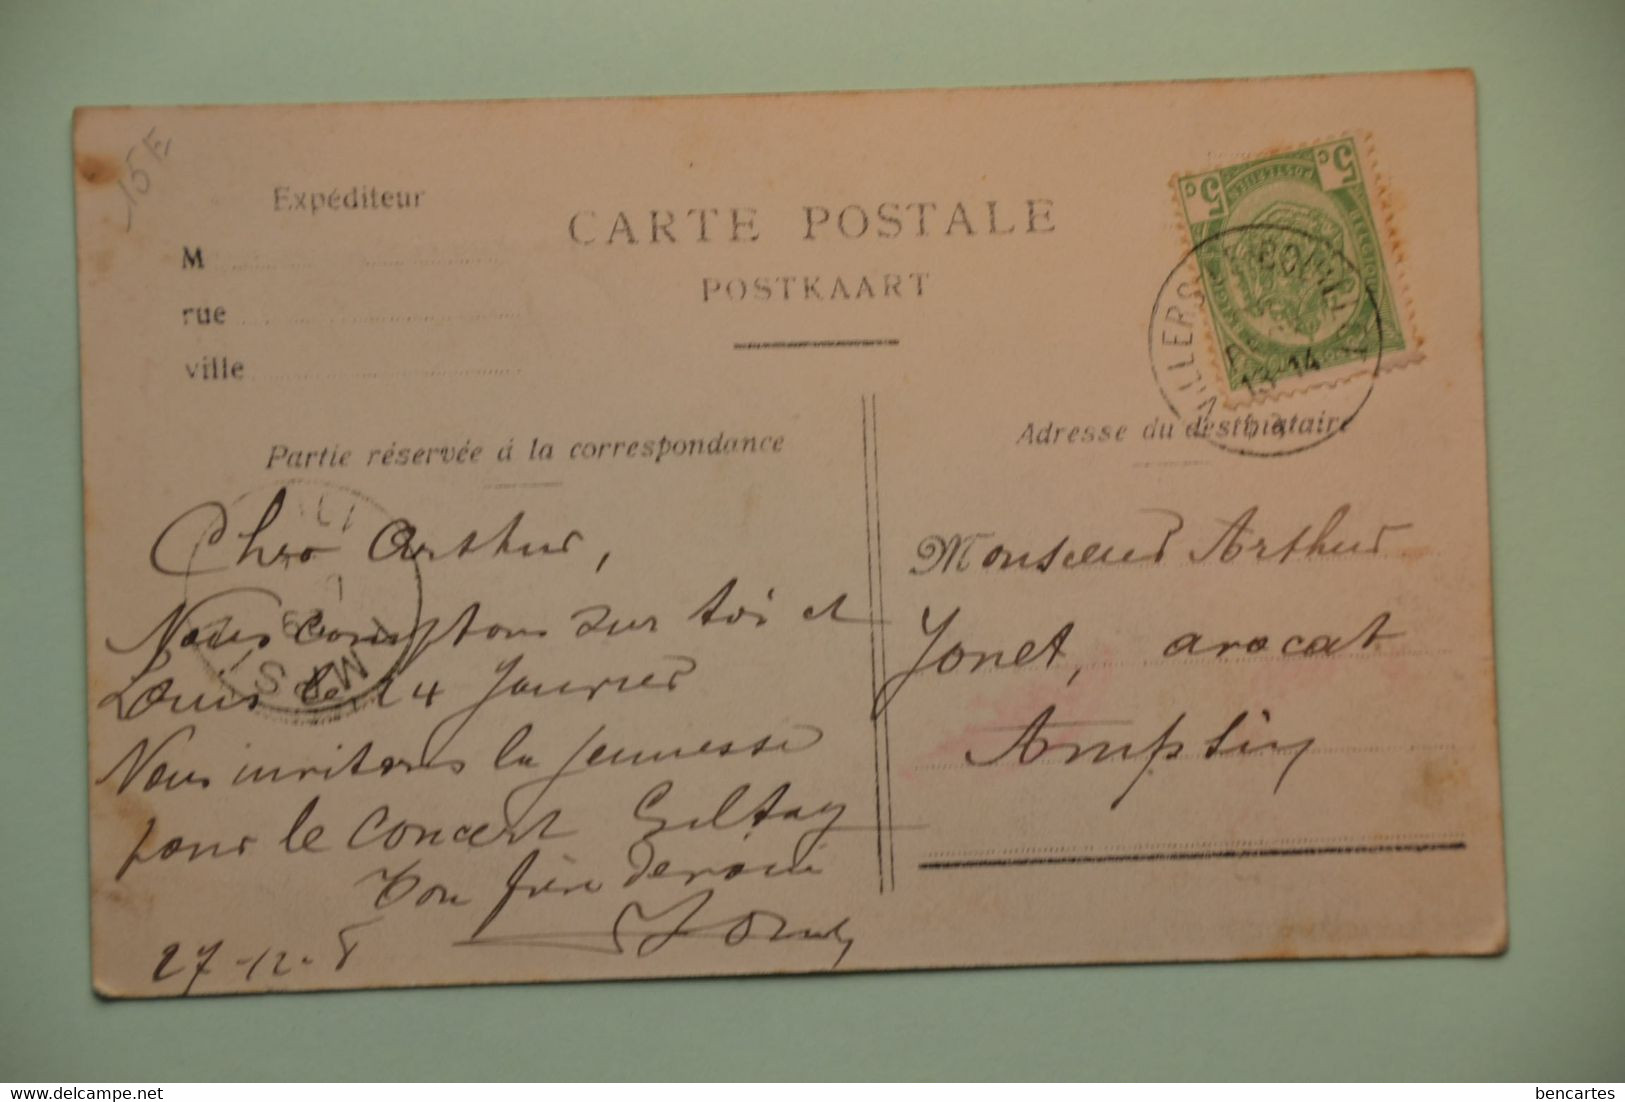 15 E
Expéditeur
M
rue
ville
CARTE POSTALE
POSTKAART
5 c 5 c
BELGIQUE
13-14
Partie réservée à la correspondance
Adresse du destinataire
Cher Arthur,
Nous comptons sur toi et
Louis le 14 Janvier
Nous invitons la jeunesse
pour le concert
Ton frère dévoué
27-12-8
Monsieur Arthur
Jonet, avocat
Ampsin
delcampe.net
bencartes